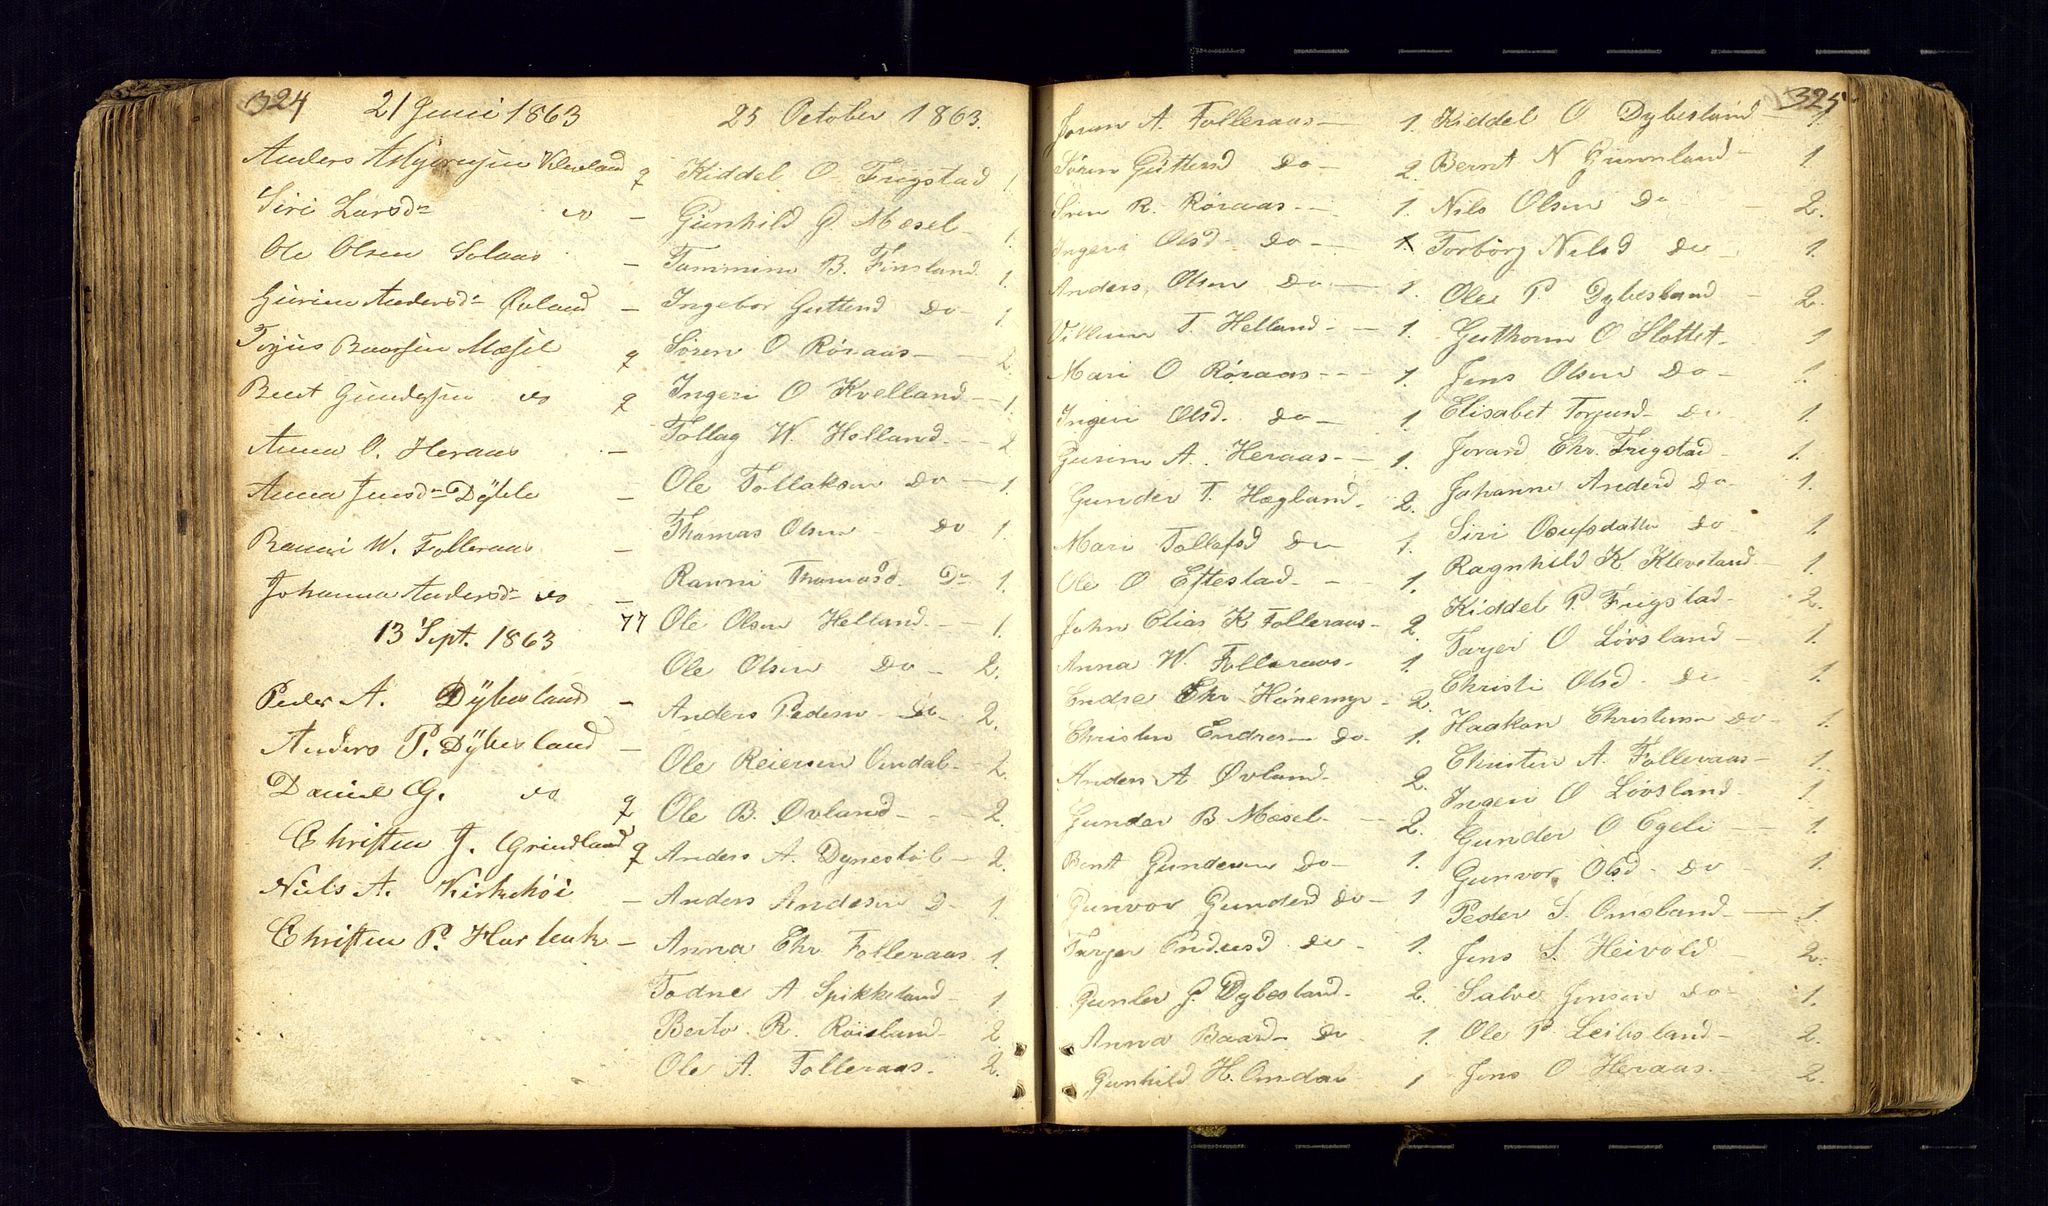 324
21 Juni 1863
Anders Asgrimsen Kleveland 2
Siri Larsdr do -
Ole Olsen Solaas -
Gurine Andersdr Øvland -
Terjus Baarsen Mæsel 2
Bent Gundersen do 2
Anna O. Heraas -
Anna Jensdr Dybesl -
Ranni W. Folleraas -
Johanna Andersdr do -
77
13 Sept. 1863
Peder A. Dybesland -
Anders P. Dybesland -
Daniel G. do 2
Christen J. Grindland 2
Niels A. Kirkehøi -
Christen P. Hartenk -
25 October 1863.
Kiddel O Frigstad 1.
Gunhild G Mæsel - 1.
Tammine B. Finsland 1.
Ingebor Guttend Do - 1.
Søren O Røraas - 2
Ingeri O Kvelland - 1.
Tollag W. Helland - 2
Ole Tollaksen Do - 1.
Thomas Olsen - Do 1.
Ranni Thomasd. Do 1.
Ole Olsen Helland - 1.
Ole Olsen Do - 2.
Anders Pedersen - Do - 2.
Ole Reiersen Omdal - 2.
Ole B. Øvland - - 2.
Anders A. Dynestøl - 2.
Anders Andersen D - 1.
Anna Chr Folleraas 1.
Todne A Spikkeland - 1
Berto R. Røisland - 2
Ole A. Folleraas - 2.
325
Joran A. Folleraas - 1.
Søren Guttens Do - 2.
Søren R. Røraas - 1.
Ingeri Olsd - Do - 1.
Anders Olsen Do - 1.
Villum T. Helland - 1.
Mari O Røraas - - 1.
Ingeri Olsd. Do - 1
Gurine A. Heraas - 1.
Gunder T. Hægland - 2.
Mari Tollefsd Do 1.
Ole O Eftestad - - 1.
John Elias K Folleraas - 2.
Anna W. Folleraas - 1.
Endre Chr Hønemyr - 2.
Christen Endresen Do - 1.
Anders A Øvland - 2.
Gunder B Mæsel - 2.
Bent Gundersen Do - 1.
Gunvor Gunderd Do - 1
Tarjer Endresd Do - 1.
Gunler G Dybesland - 2.
Anna Baard - Do 1.
Gunhild H. Omdal - 1
Kiddel O Dybesland - 1.
Bernt N Grunnland - 1.
Nils Olsen Do - 2.
Torborg Nilsd Do - 1.
Ole P. Dybesland - 2.
Guthorm O Slottet - 1
Jens Olsen Do - 1.
Elisabet Torjusd - Do 1.
Jorand Chr. Frigstad - 1.
Johanne Anderd Do - 1.
Siri Osufsdatter Do - 1.
Ragnhild K Kleveland - 1.
Kiddel P. Frigstad - 2.
Tarjer O Løvsland - 1.
Christi Olsd. Do - 1.
Haakon Christensen Do - 1.
Christen A. Folleraas - 1.
Ingeri O Løvsland - 1.
Gunder O Egeli - 1.
Gunvor Olsd - Do - 1.
Peder S. Omsland - 1.
Jens S. Heivold - 2.
Salve Jensen Do - 1.
Ole P. Leibsland - 2.
Jens O Heraas - 2.